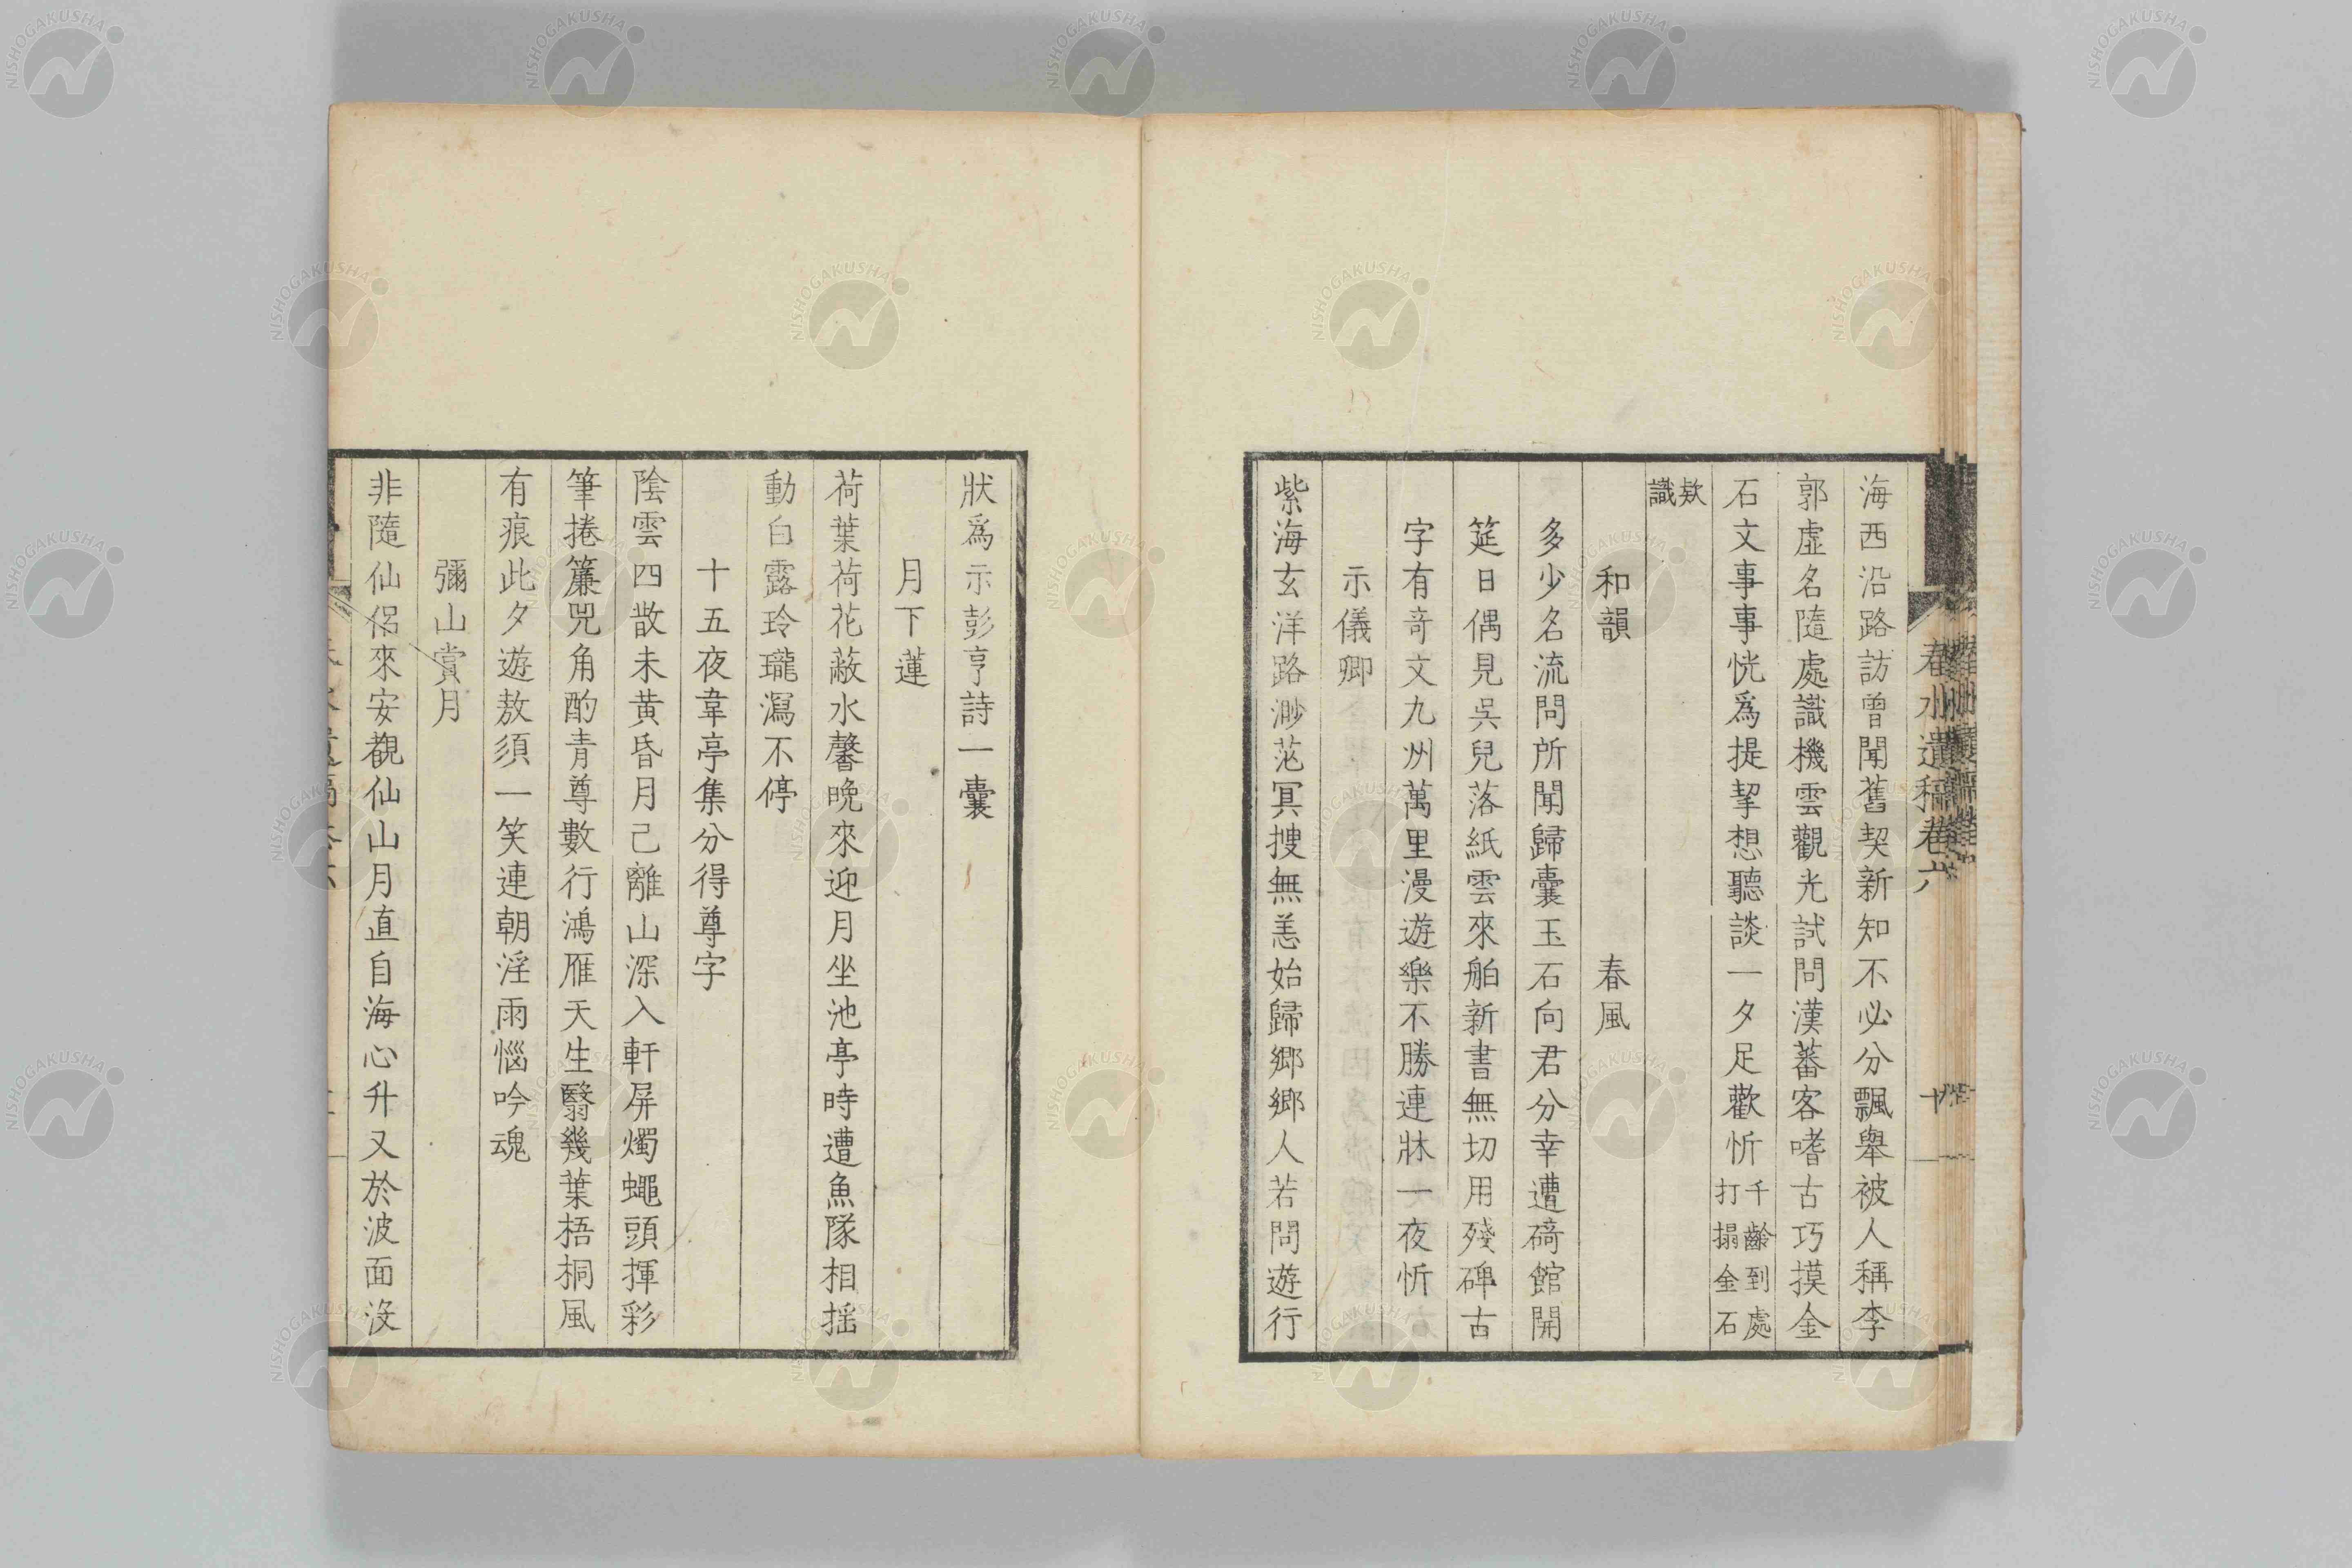 春水遺稿卷六
十
海西沿路訪曾聞舊契新知不必分飄舉被人稱李
郭虛名隨處識機雲觀光試問漢蕃客嗜古巧摸金
石文事事恍爲提挈想聽談一夕足歡忻千齡到處打搨金石
欵識
和韻 春風
多少名流問所聞歸囊玉石向君分幸遭碕館開
筵日偶見吳兒落紙雲來舶新書無切用殘碑古
字有竒文九州萬里漫遊樂不勝連牀一夜忻
示儀卿
紫海玄洋路渺茫冥搜無恙始歸鄉鄉人若問遊行
狀爲示彭亨詩一囊
月下蓮
荷葉荷花蔽水馨晚來迎月坐池亭時遭魚隊相揺
動白露玲瓏瀉不停
十五夜韋亭集分得尊字
陰雲四散未黃昏月已離山深入軒屏燭蠅頭揮彩
筆捲簾兕角酌青尊數行鴻雁天生翳幾葉梧桐風
有痕此夕遊敖須一笑連朝淫雨惱吟魂
彌山賞月
非隨仙侶來安觀仙山月直自海心升又於波面沒
NISHOGAKUSHA